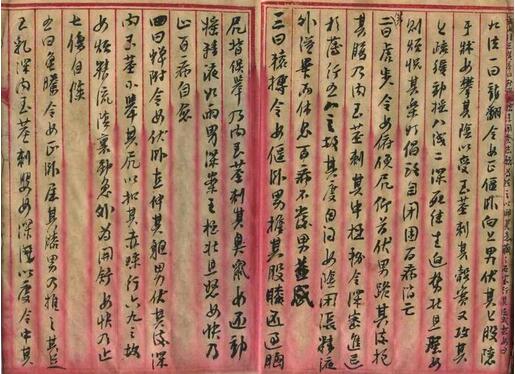 九法一曰龍翻令女正偃臥向上男伏其上股隱
于牀女攀其陰以受玉莖刺其穀實又攻其
上疏緩動搖八淺二深死往生返勢壯且強女
則煩悅其樂如倡致自閉固百病消亡
二曰虎步令女俯俛尻仰首伏男跪其後抱
其腹乃內玉莖刺其中極務令深密進退
相薄行五八之數其度自得女陰閉張精液
外溢畢而休息百病不發男益盛
三曰猿搏令女偃臥男擔其股膝還過胸
尻背俱舉乃內玉莖刺其臭鼠女還動
搖精液如雨男深案之極壯且怒女快乃
止百病自愈
四曰蟬附令女伏臥直伸其軀男伏其後深
內玉莖小舉其尻以扣其赤珠行六九之數
女煩精流陰裏動急外為開舒女快乃止
七傷自除
五曰龜騰令女正臥屈其兩膝男乃推之其足
至乳深內玉莖刺嬰女深淺以度令中其